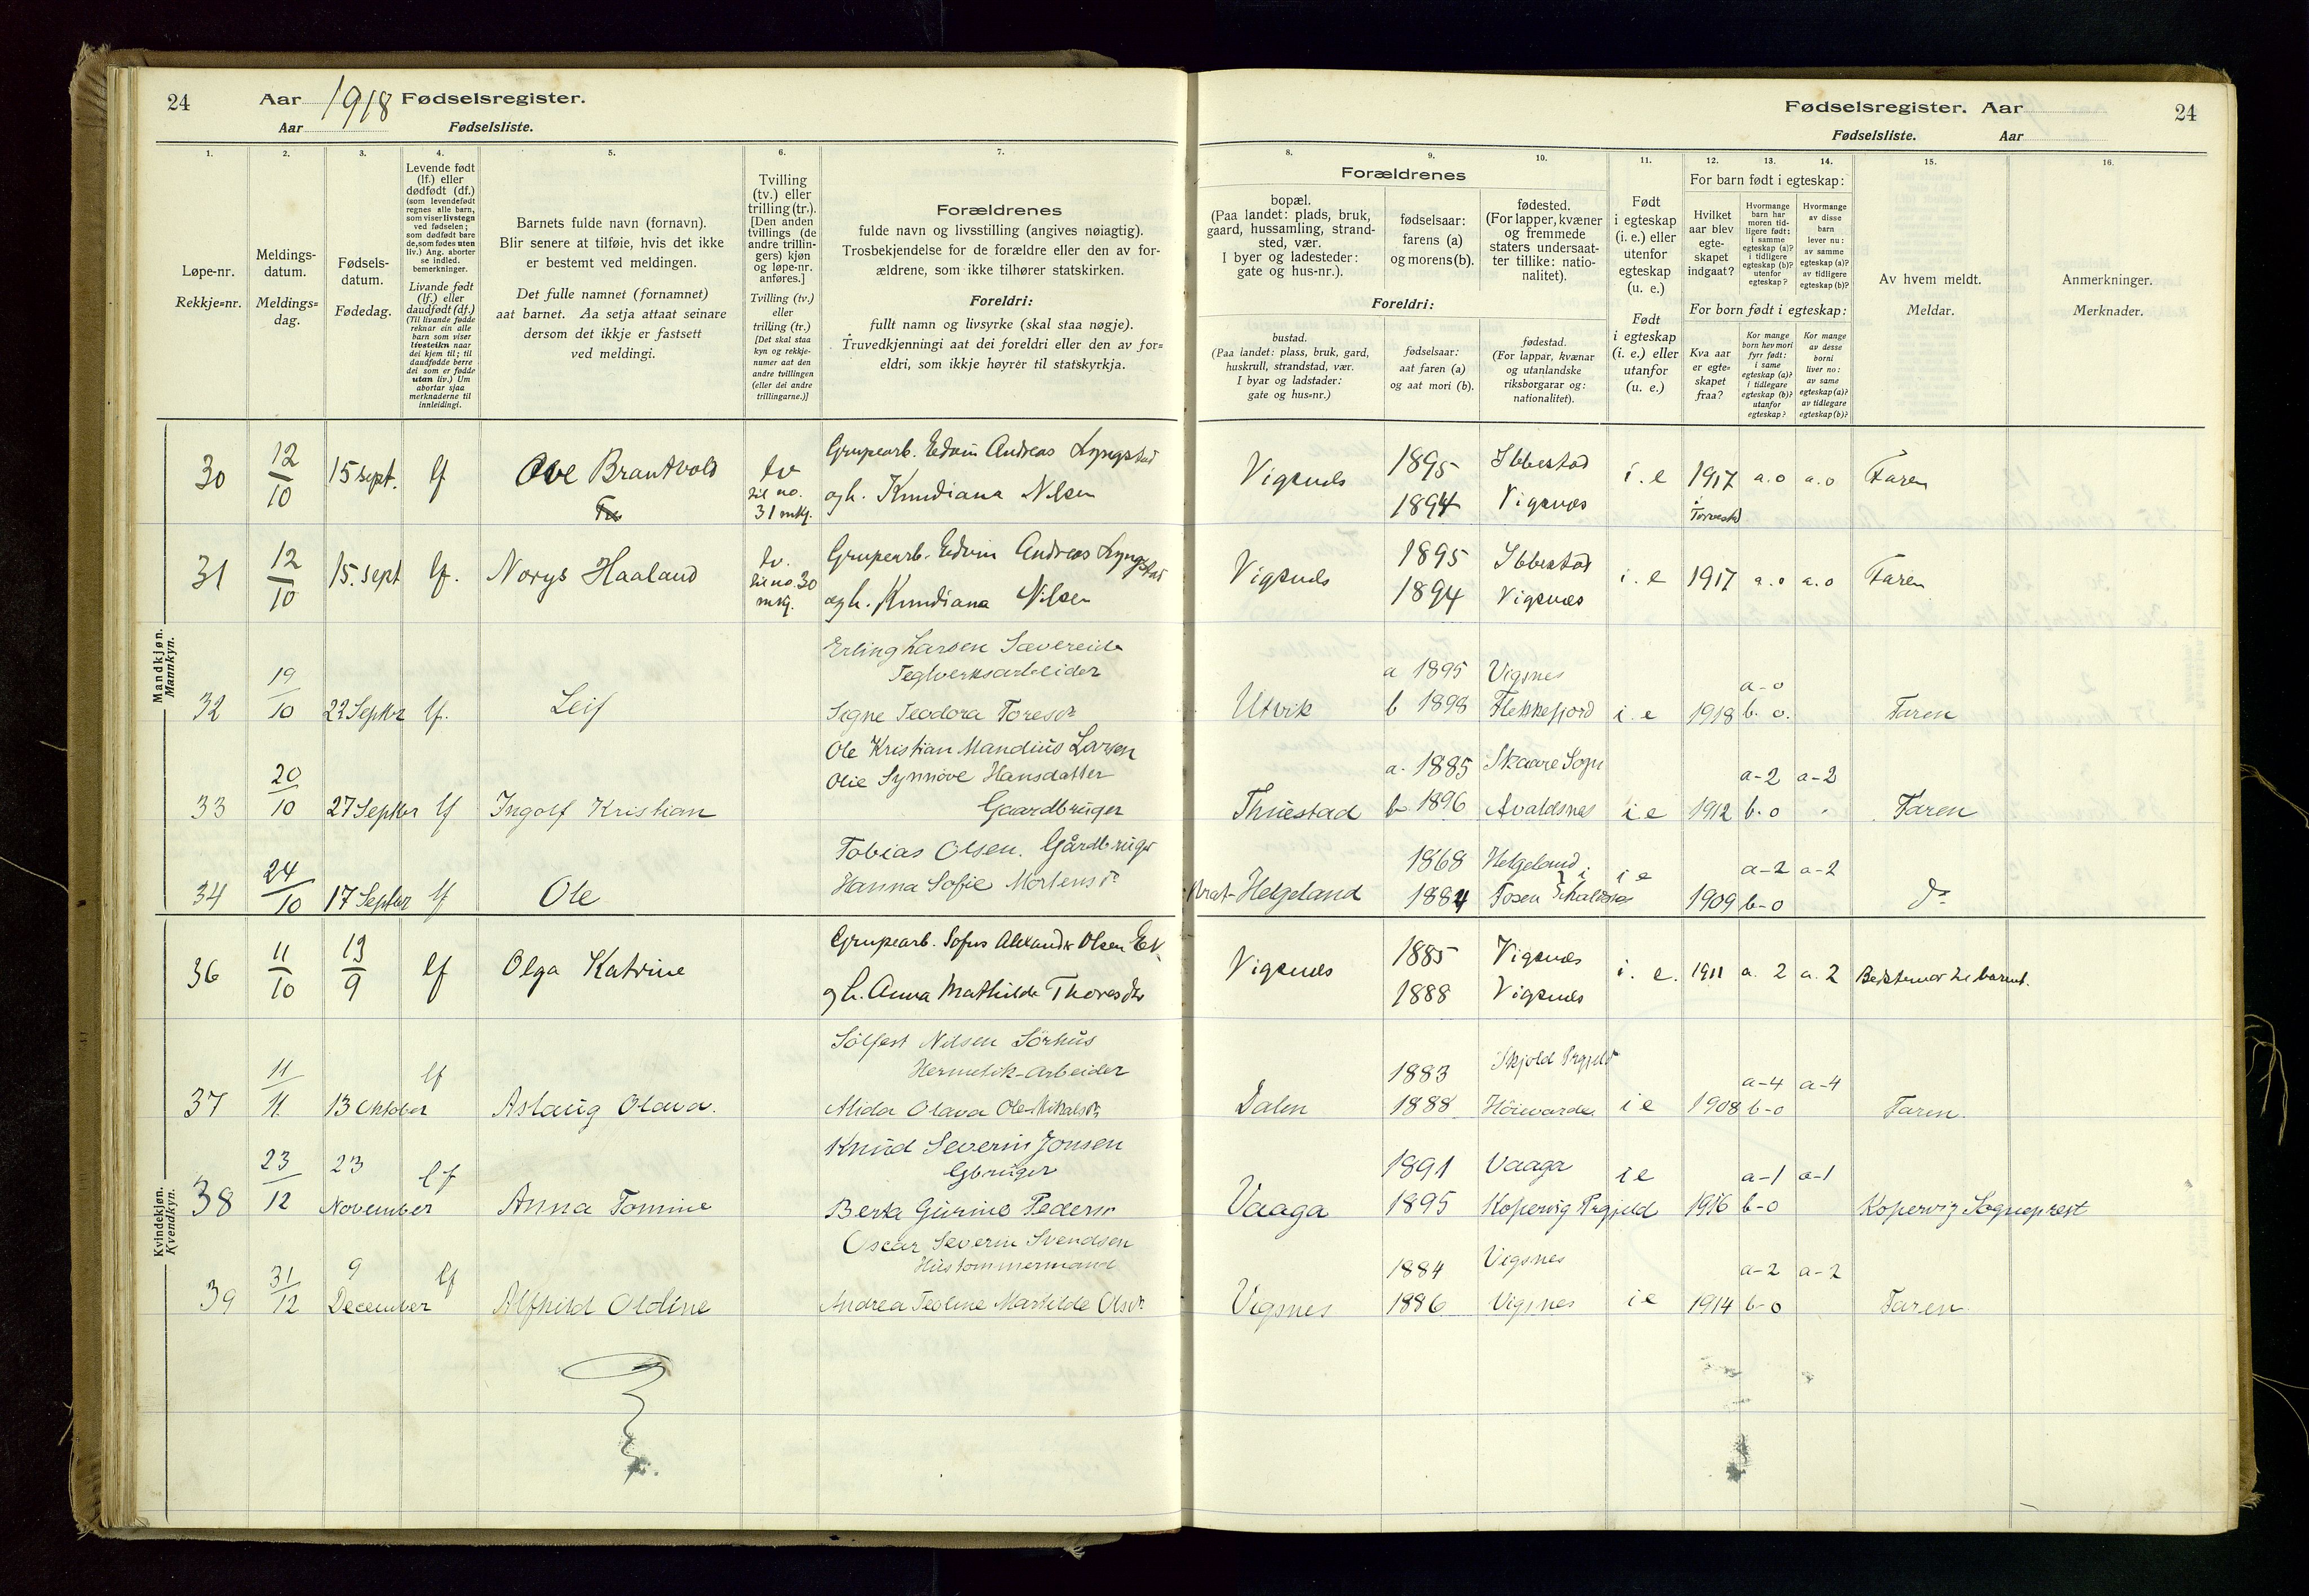 24 Aar 1918 Fødselsregister.
Aar Fødselsliste.
Fødselsregister. Aar 24
Fødselsliste. Aar
1.
Løpe-nr.
Rekkje=nr.
2.
Meldings-
datum.
Meldings=
dag.
3.
Fødsels-
datum.
Fødedag.
4.
Levende født
(lf.) eller
dødfødt (df.)
(som levendefødt
regnes alle barn,
som viser livstegn
ved fødselen;
som dødfødt bare
de, som fødes uten
liv.) Ang. aborter
se indled.
bemerkninger.
Livande født
(lf.) eller
daudfødt (df.)
(Til livande fødde
reknar ein alle
barn som viser
livsteikn naar
dei kjem til; til
daudfødde berre
dei som er fødde
utan liv.) Um
abortar sjaa
merknaderne til
innleidingi.
5.
Barnets fulde navn (fornavn).
Blir senere at tilføie, hvis det ikke
er bestemt ved meldingen.
Det fulle namnet (fornamnet)
aat barnet. Aa setja attaat seinare
dersom det ikkje er fastsett
ved meldingi.
6.
Tvilling
(tv.) eller
trilling (tr.).
[Den anden
tvillings (de
andre trillin-
gers) kjøn
og løpe-nr.
anføres.]
Tvilling (tv.)
eller
trilling (tr.)
[Det skal staa
kyn og rekkje-
numer aat den
andre tvillingen
(eller dei andre
trillingarne.)]
7.
Forældrenes
fulde navn og livsstilling (angives nøiagtig).
Trosbekjendelse for de forældre eller den av for-
ældrene, som ikke tilhører statskirken.
Foreldri:
fullt namn og livsyrke (skal staa nøgje).
Truvedkjenningi aat dei foreldri eller den av for=
eldri, som ikkje høyrer til statskyrkja.
Forældrenes
8.
bopæl.
(Paa landet: plads, bruk,
gaard, hussamling, strand-
sted, vær.
I byer og ladesteder:
gate og hus-nr.).
Foreldri:
bustad.
(Paa landet: plass, bruk, gard,
huskrull, strandstad, vær.
I byar og ladstader:
gate og hus=nr.)
9.
fødselsaar:
farens (a)
og morens (b).
fødselsaar:
aat faren (a)
og aat mori (b).
10.
fødested.
(For lapper, kvæner
og fremmede
staters undersaat-
ter tillike: natio-
nalitet).
fødestad.
(For lappar, kvænar
og utanlandske
riksborgarar og:
nationalitet).
11.
Født
i egteskap
(i. e.) eller
utenfor
egteskap
(u. e.)
Født
i egteskap
(i. e.) eller
utanfor
(u. e.)
For barn født i egteskap:
12.
Hvilket
aar blev
egte-
skapet
indgaat?
For born født i egteskap:
Kva aar
er egte=
skapet
fraa?
13.
Hvormange
barn har
moren tid-
ligere født:
i samme
egteskap (a)?
i tidligere
egteskap (b)?
utenfor
egteskap?
Kor mange
born hev mori
fyrr født:
i same
egteskap (a)?
i tidlegare
egteskap (b)?
utanfor
egteskap?
14.
Hvormange
av disse
barn
lever nu:
av samme
egteskap (a)?
av tidligere
egteskap (b)?
Kor mange
av desse
borni
liver no:
av same
egteskap (a)?
av tidlegare
egteskap (b)?
15.
Av hvem meldt.
Meldar.
16.
Anmerkninger.
Merknader.
Mandkjøn.
Mannkyn.
30 12/10 15 sept. lf Ove Brantvold tv til no. 31 mkj. Grupearb. Edvin Andreas Lyngstad
og h. Kundiana Nilsen Vigsnes 1895 Ibbestad
1894 Vigsnes i. e 1917 i Torvestd a.o a.o Faren
31 12/10 15. sept lf. Norys Haaland tv. til no. 30 mkj. Grupearb. Edvin Andreas Lyngstad
og h. Kundiana Nilsen Vigsnes 1895 Ibbestad
1894 Vigsnes i. e 1917 a.o a.o Faren
32 19/10 22 Septbr lf. Leif Erling Larsen Sævereide
Teglverksarbeider
Signe Teodora Toresdr Utvik a 1895 Vigsnes
b 1898 Flekkefjord i. e 1918 a-o b-o. Faren
33 20/10 27 Septbr lf Ingolf Kristian Ole Kristian Mandius Larsen
Olie Synnøve Hansdatter
Gaardbruger Thuestad a. 1885 Skaare Sogn
b 1896 Avaldsnes i e 1912 a-2 b-o a-2 Faren
34 24/10 17 Septbr lf Ole Tobias Olsen. Gårdbruger
Hanna Sofie Mortensdr Helgeland 1868 Helgeland
1884 Tosen i e 1909 a-2 b-o a-2 do
Kvindekjøn.
Kvendkyn.
36 11/10 13/9 lf Olga Katrine Grupearb. Sofus Alexander Olsen Ek
og h. Anna Mathilde Thoresdtr Vigsnes 1885 Vigsnes
1888 Vigsnes i. e. 1911 a. 2 a. 2 Bestemor til barnet.
37 11/11 13 Oktober lf Aslaug Olava. Sølfest Nilsen Sørhus
Hermetik-Arbeider
Alida Olava Ole-Mikalsdr Dalen 1883 Skjold Prgjeld
1888 i e 1908 a-4 b-o a-4 Faren.
38 23/12 23 November lf Anna Tomine Knud Severin Jonsen
Gbruger
Berta Gurine Pedersdr Vaaga 1891 Vaaga
1895 Kopervig Prgjeld i e 1916 a-1 b-o a-1 Kopervig Sogneprest
39 31/12 9 December lf Alfhild Oldine Oscar Severin Svendsen
Hustømmermand
Andrea Teoline Martilde Olsdr Vigsnes 1884 Vigsnes
1886 Vigsnes i e 1914 a-2 b-o a-2 Faren